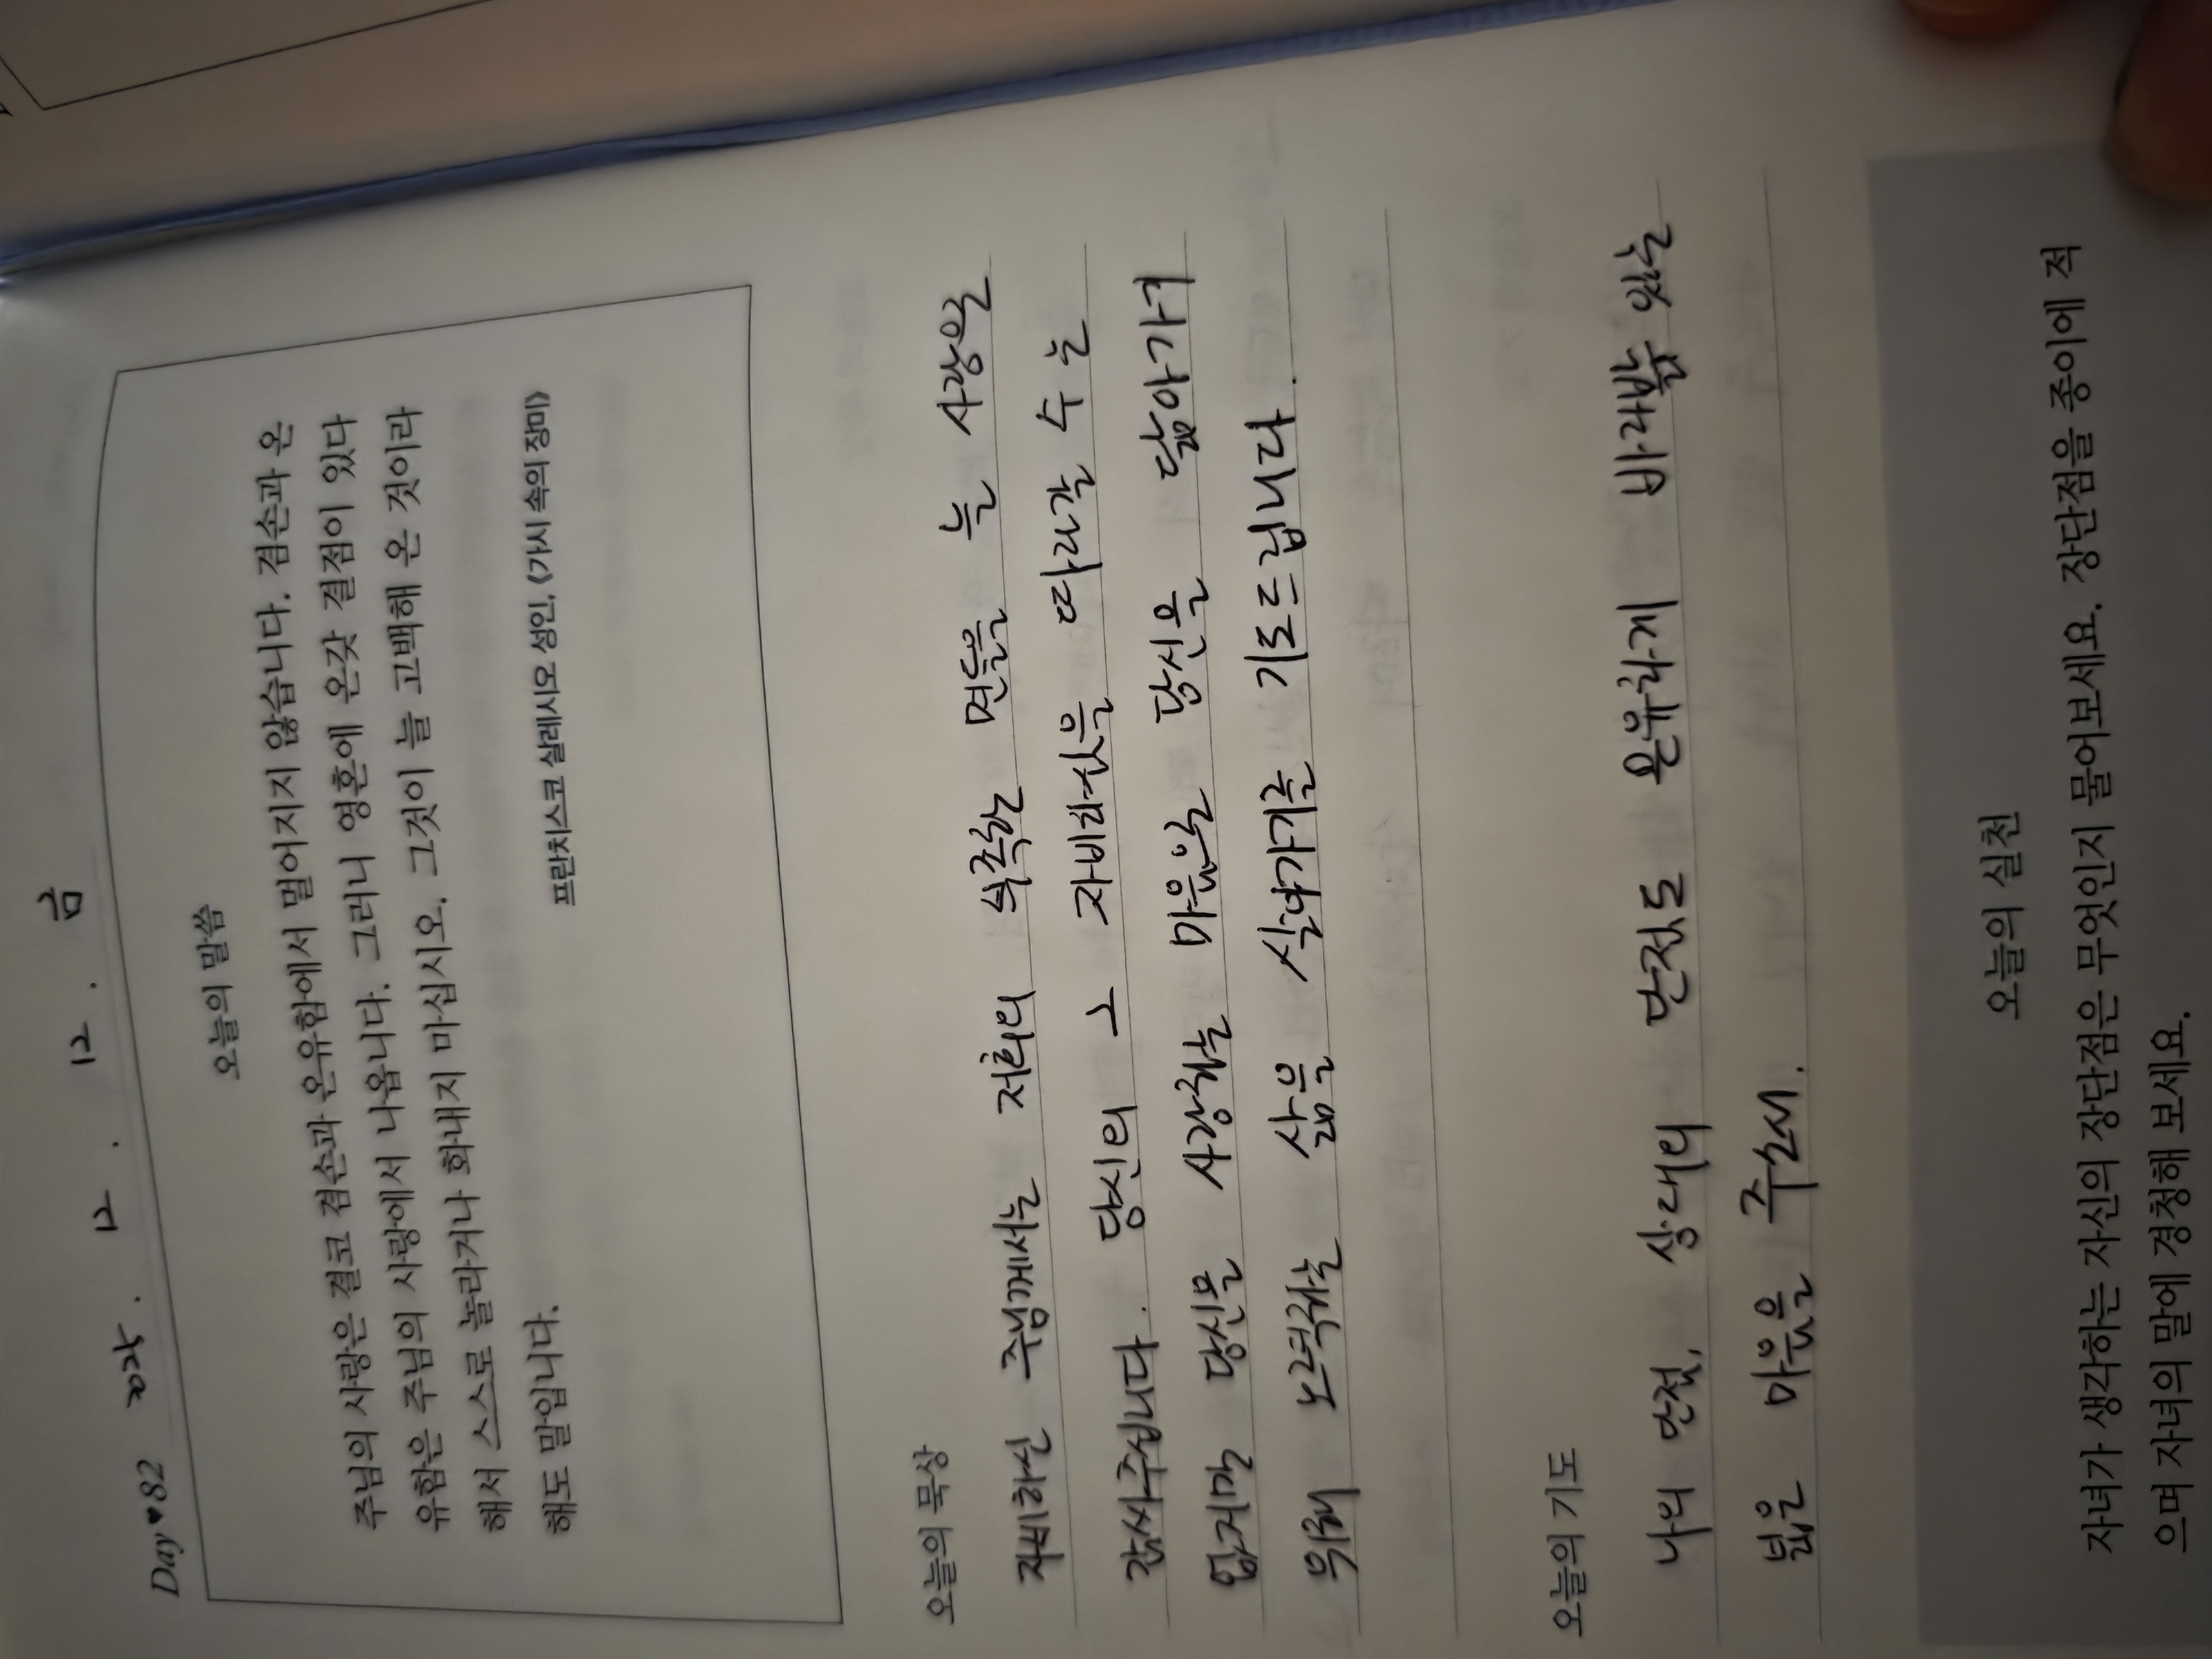 Day♥82 2025. 12. 12. 금
오늘의 말씀
주님의 사랑은 결코 겸손과 온유함에서 멀어지지 않습니다. 겸손과 온
유함은 주님의 사랑에서 나옵니다. 그러니 영혼에 온갖 결점이 있다
해서 스스로 놀라거나 화내지 마십시오. 그것이 늘 고백해 온 것이라
해도 말입니다.
프란치스코 살레시오 성인, 《가시 속의 장미》
오늘의 묵상
자비하신 주님께서는 저희의 부족한 면들을 늘 사랑으로
감싸주십니다. 당신의 그 자비로움을 따라갈 수는
없지만 당신을 사랑하는 마음으로 당신을 닮아가려
위해 노력하는 삶을 살아가기를 기도드립니다.
오늘의 기도
나의 단점, 상대의 단점도 온유하게 바라볼 수 있는
넓은 마음을 주소서.
오늘의 실천
자녀가 생각하는 자신의 장단점은 무엇인지 물어보세요. 장단점을 종이에 적
으며 자녀의 말에 경청해 보세요.